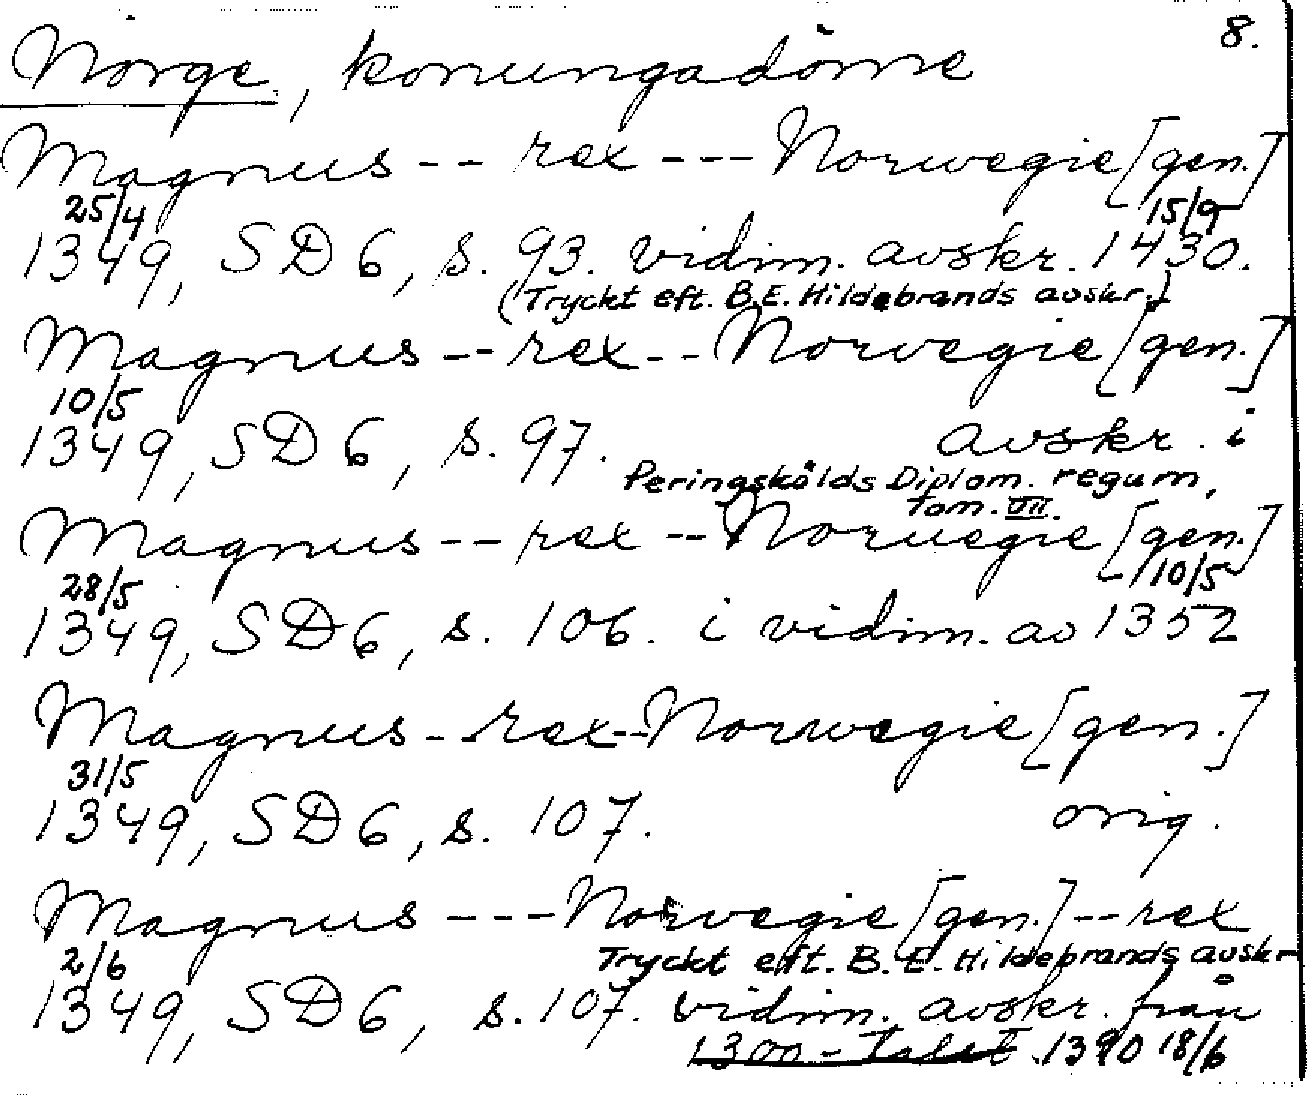 8.
Norge, konungadöme
Magnus -- rex --- Norwegie [gen.]
25/4 15/9
1349, SD 6, s. 93. vidim. avskr. 1430.
(Tryckt eft. B.E. Hildebrands avskr.)
Magnus -- rex -- Norvegie [gen.]
10/5
1349, SD 6, s. 97. avskr. i
Peringskölds Diplom. regum,
Tom. VII.
Magnus -- rex -- Noruegie [gen.]
28/5 10/5
1349, SD 6, s. 106. i vidim. av 1352
Magnus -- rex -- Norwegie [gen.]
31/5
1349, SD 6, s. 107. orig.
Magnus --- Norvegie [gen.] -- rex
2/6 Tryckt eft. B. E. Hildebrands avskr
1349, SD 6, s. 107. vidim. avskr. från
1300-talet. 1390 18/6